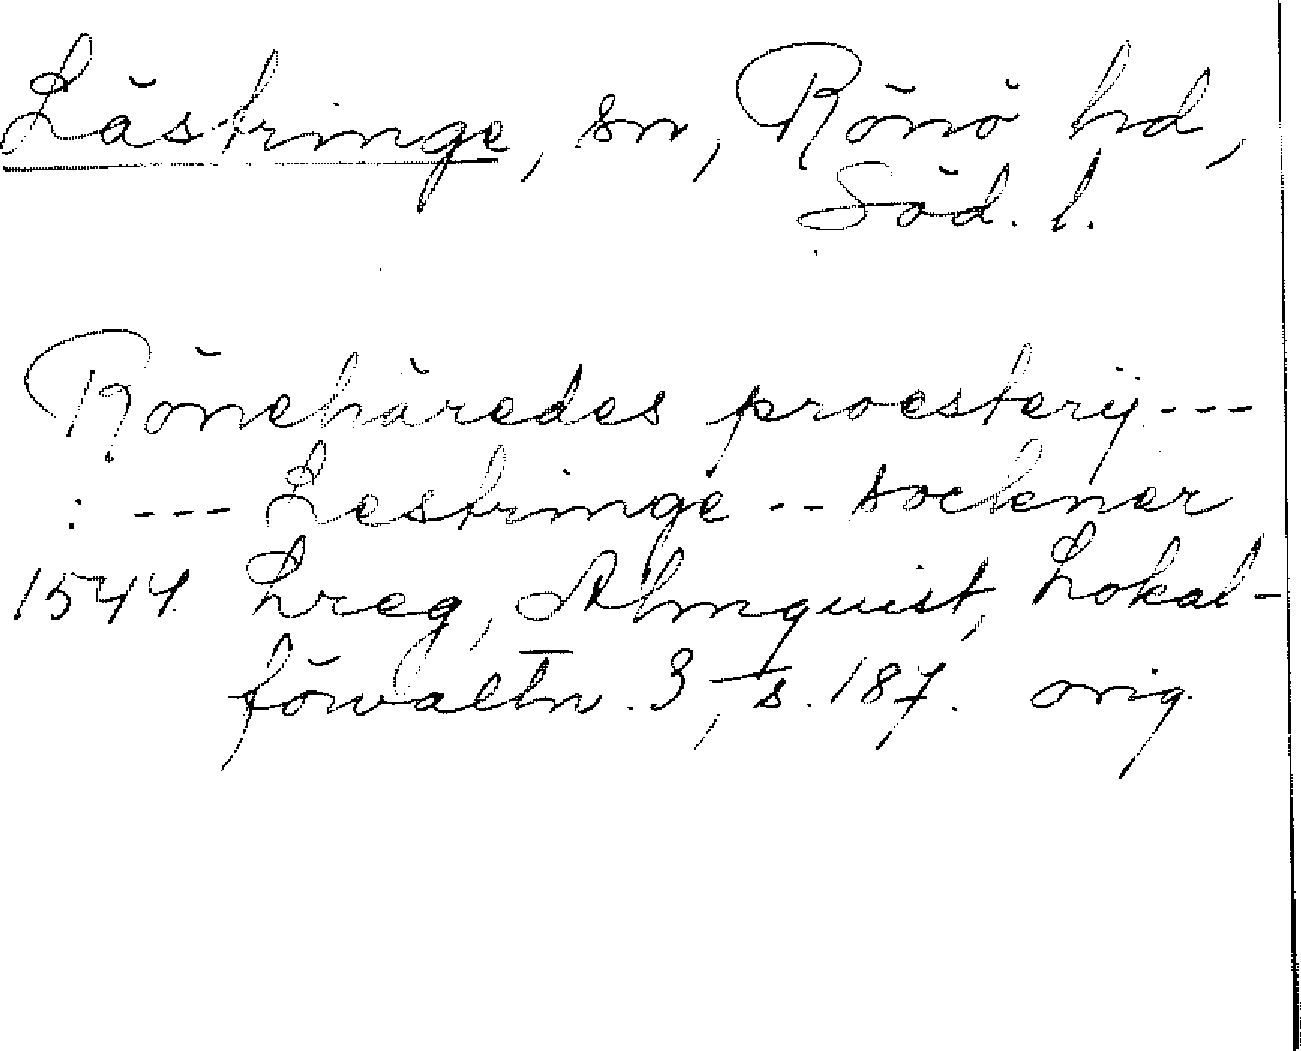 Lästringe, sn, Rönö hd,
Söd. l.
Rönehäredes proesterij ---
: --- Lestringe -- sockener
1544 Lreg, Almquist, Lokal-
förvaltn. 3, s. 187. orig.